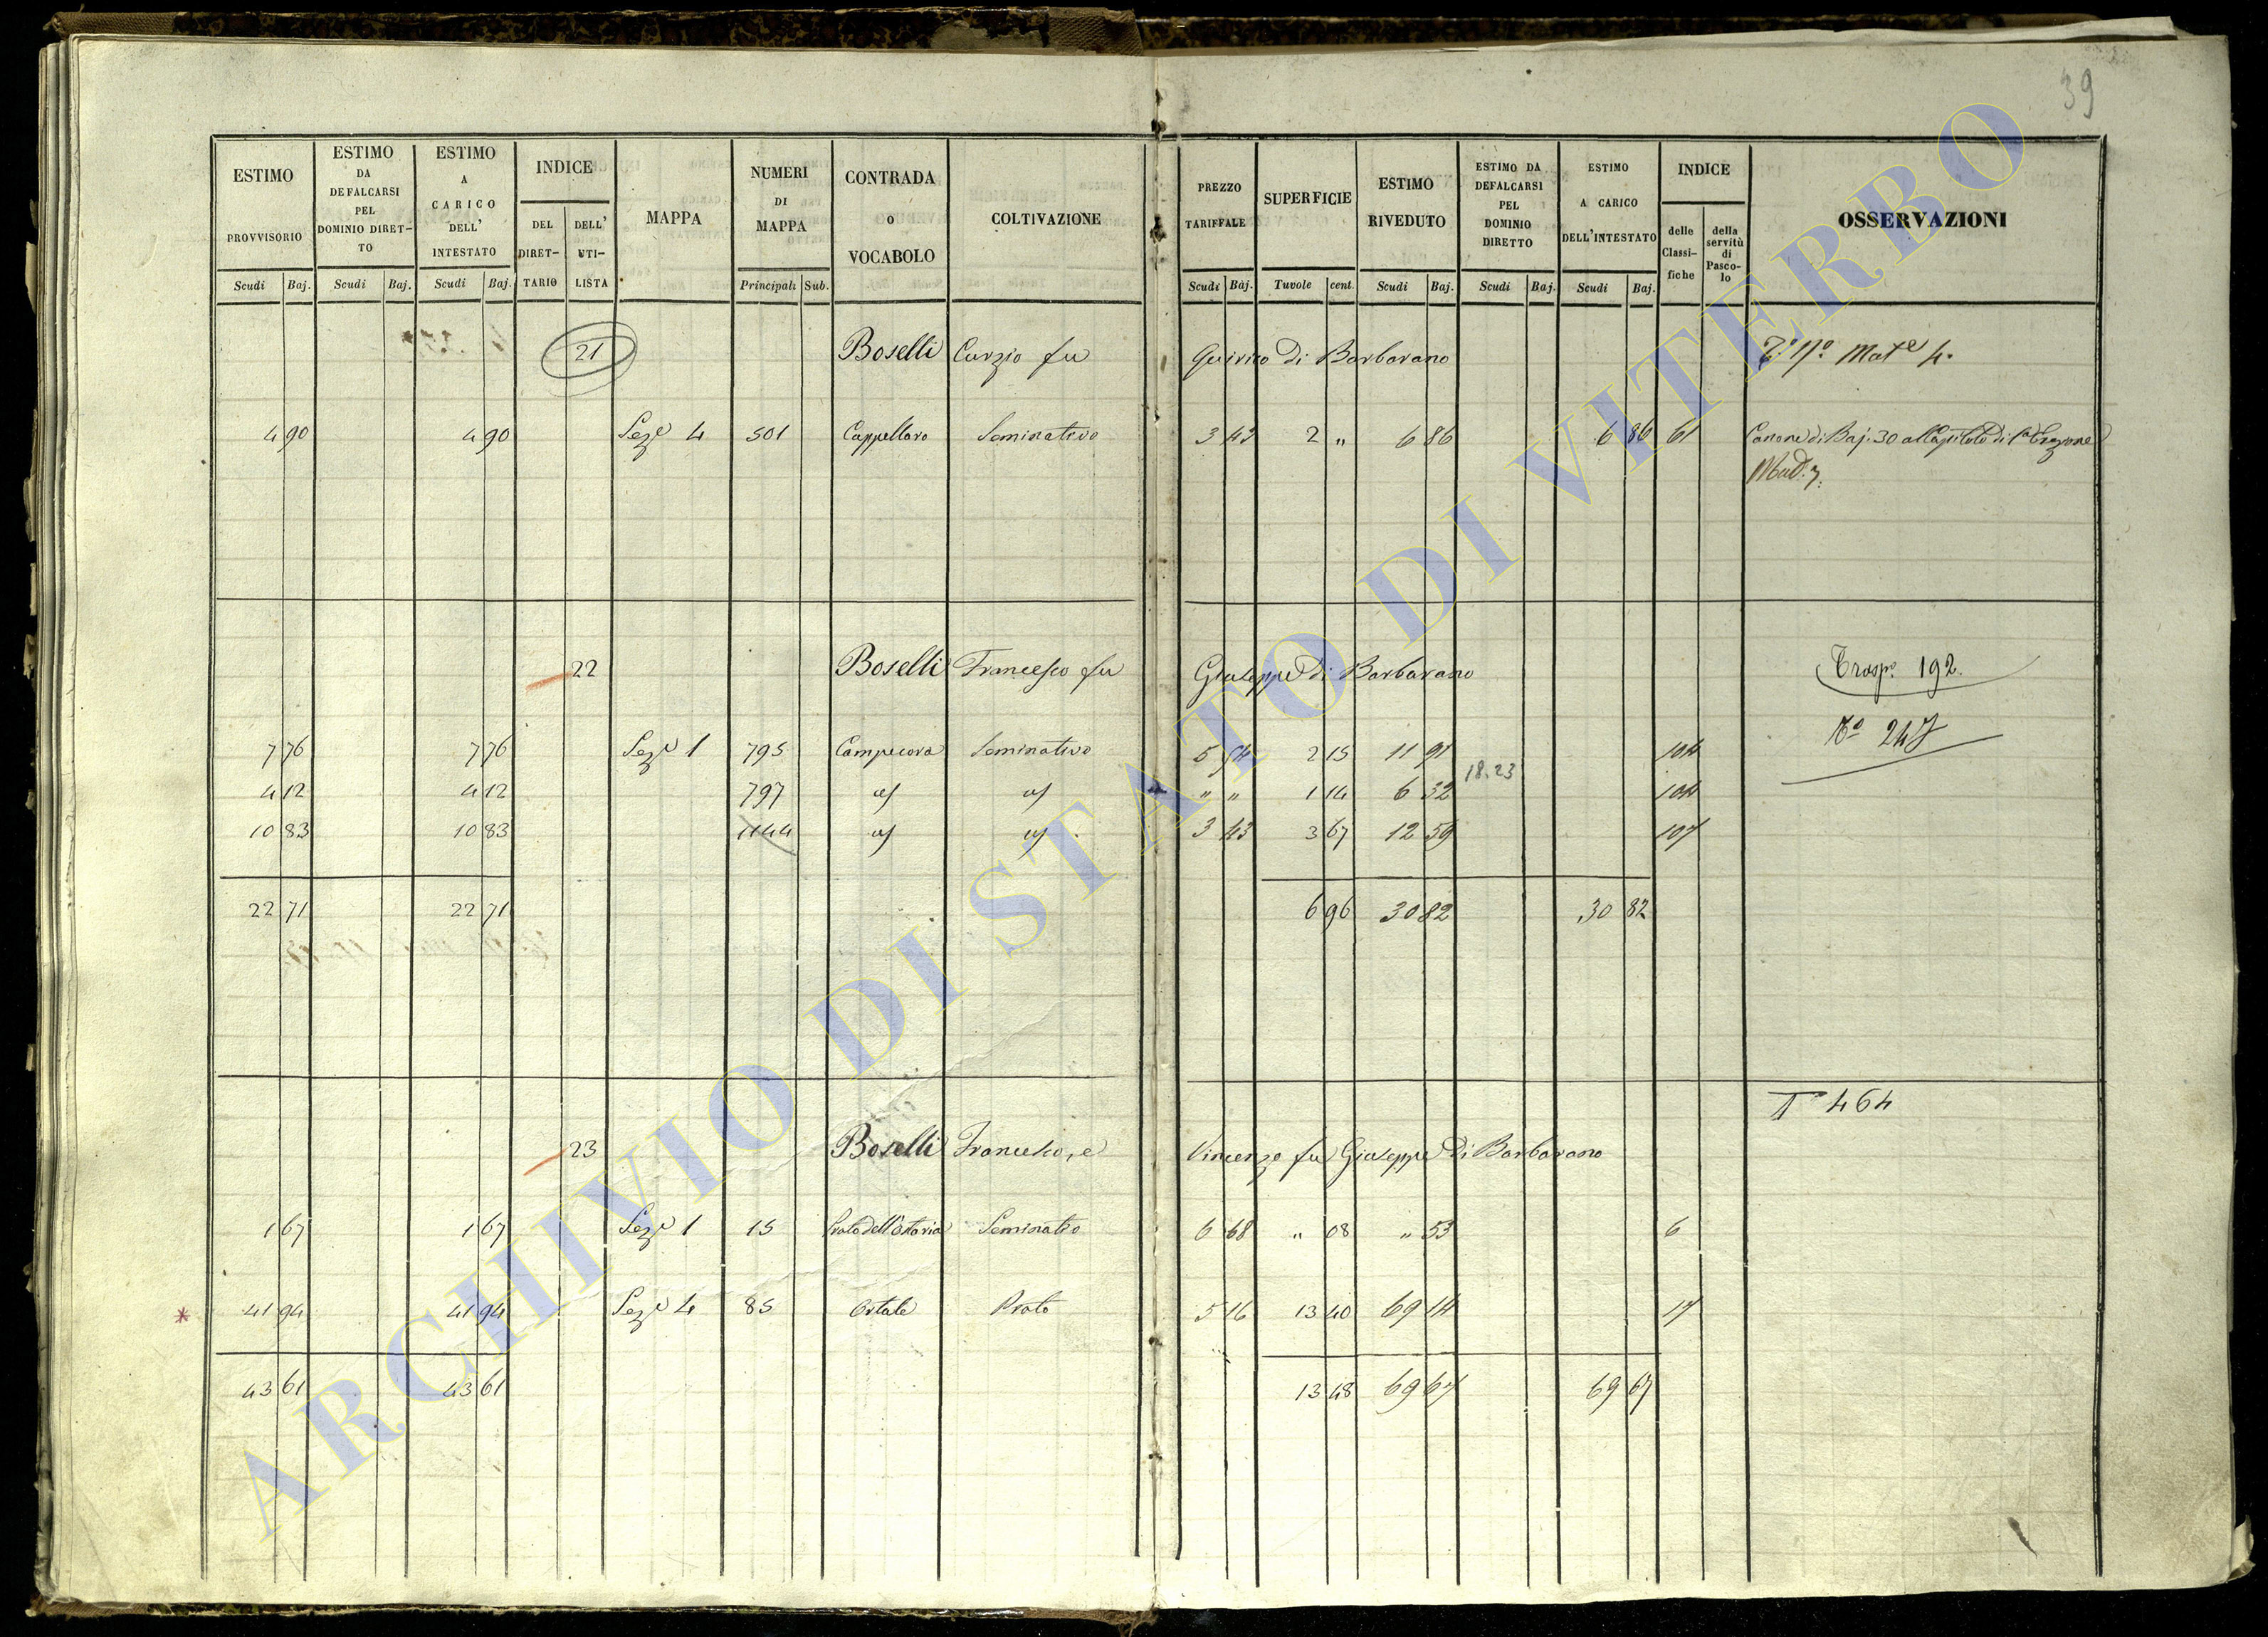 39
ESTIMO PROVVISORIO Scudi Baj. ESTIMO DA DEFALCARSI PEL DOMINIO DIRETTO Scudi Baj. ESTIMO A CARICO DELL' INTESTATO Scudi Baj. INDICE DEL DIRETTARIO DELL' UTILISTA MAPPA NUMERI DI MAPPA Principali Sub. CONTRADA o VOCABOLO COLTIVAZIONE PREZZO TARIFFALE Scudi Baj. SUPERFICIE Tuvole cent. ESTIMO RIVEDUTO Scudi Baj. ESTIMO DA DEFALCARSI PEL DOMINIO DIRETTO Scudi Baj. ESTIMO A CARICO DELL'INTESTATO Scudi Baj. INDICE delle Classifiche della servitù di Pascolo OSSERVAZIONI
21 Boselli Curzio fu Quirico di Barbarano Mat.e 4.
4 90 4 90 Sez.e 4 501 Cappellaro Seminativo 3 43 2 " 6 86 6 86 61 Canone di Baj. 30 al Capitolo di
22 Boselli Francesco fu Giuseppe di Barbarano Trasp. 192.
7 76 7 76 Sez.e 1 795 Campicora Seminativo 5 54 2 15 11 91 104 247
18.23
4 12 4 12 797 " " 1 14 6 32 104
10 83 10 83 1144 3 43 3 67 12 59 107
22 71 22 71 6 96 30 82 30 82
T 464
23 Boselli Francesco, e Vincenzo fu Giuseppe di Barbarano
1 67 1 67 Sez.e 1 15 Prato dell'Osteria Seminat.o 6 68 " 08 " 53 6
* 41 94 41 94 Sez.e 4 85 Ortale Prato 5 16 13 40 69 14 17
43 61 43 61 13 48 69 67 69 67
ARCHIVIO DI STATO DI VITERBO